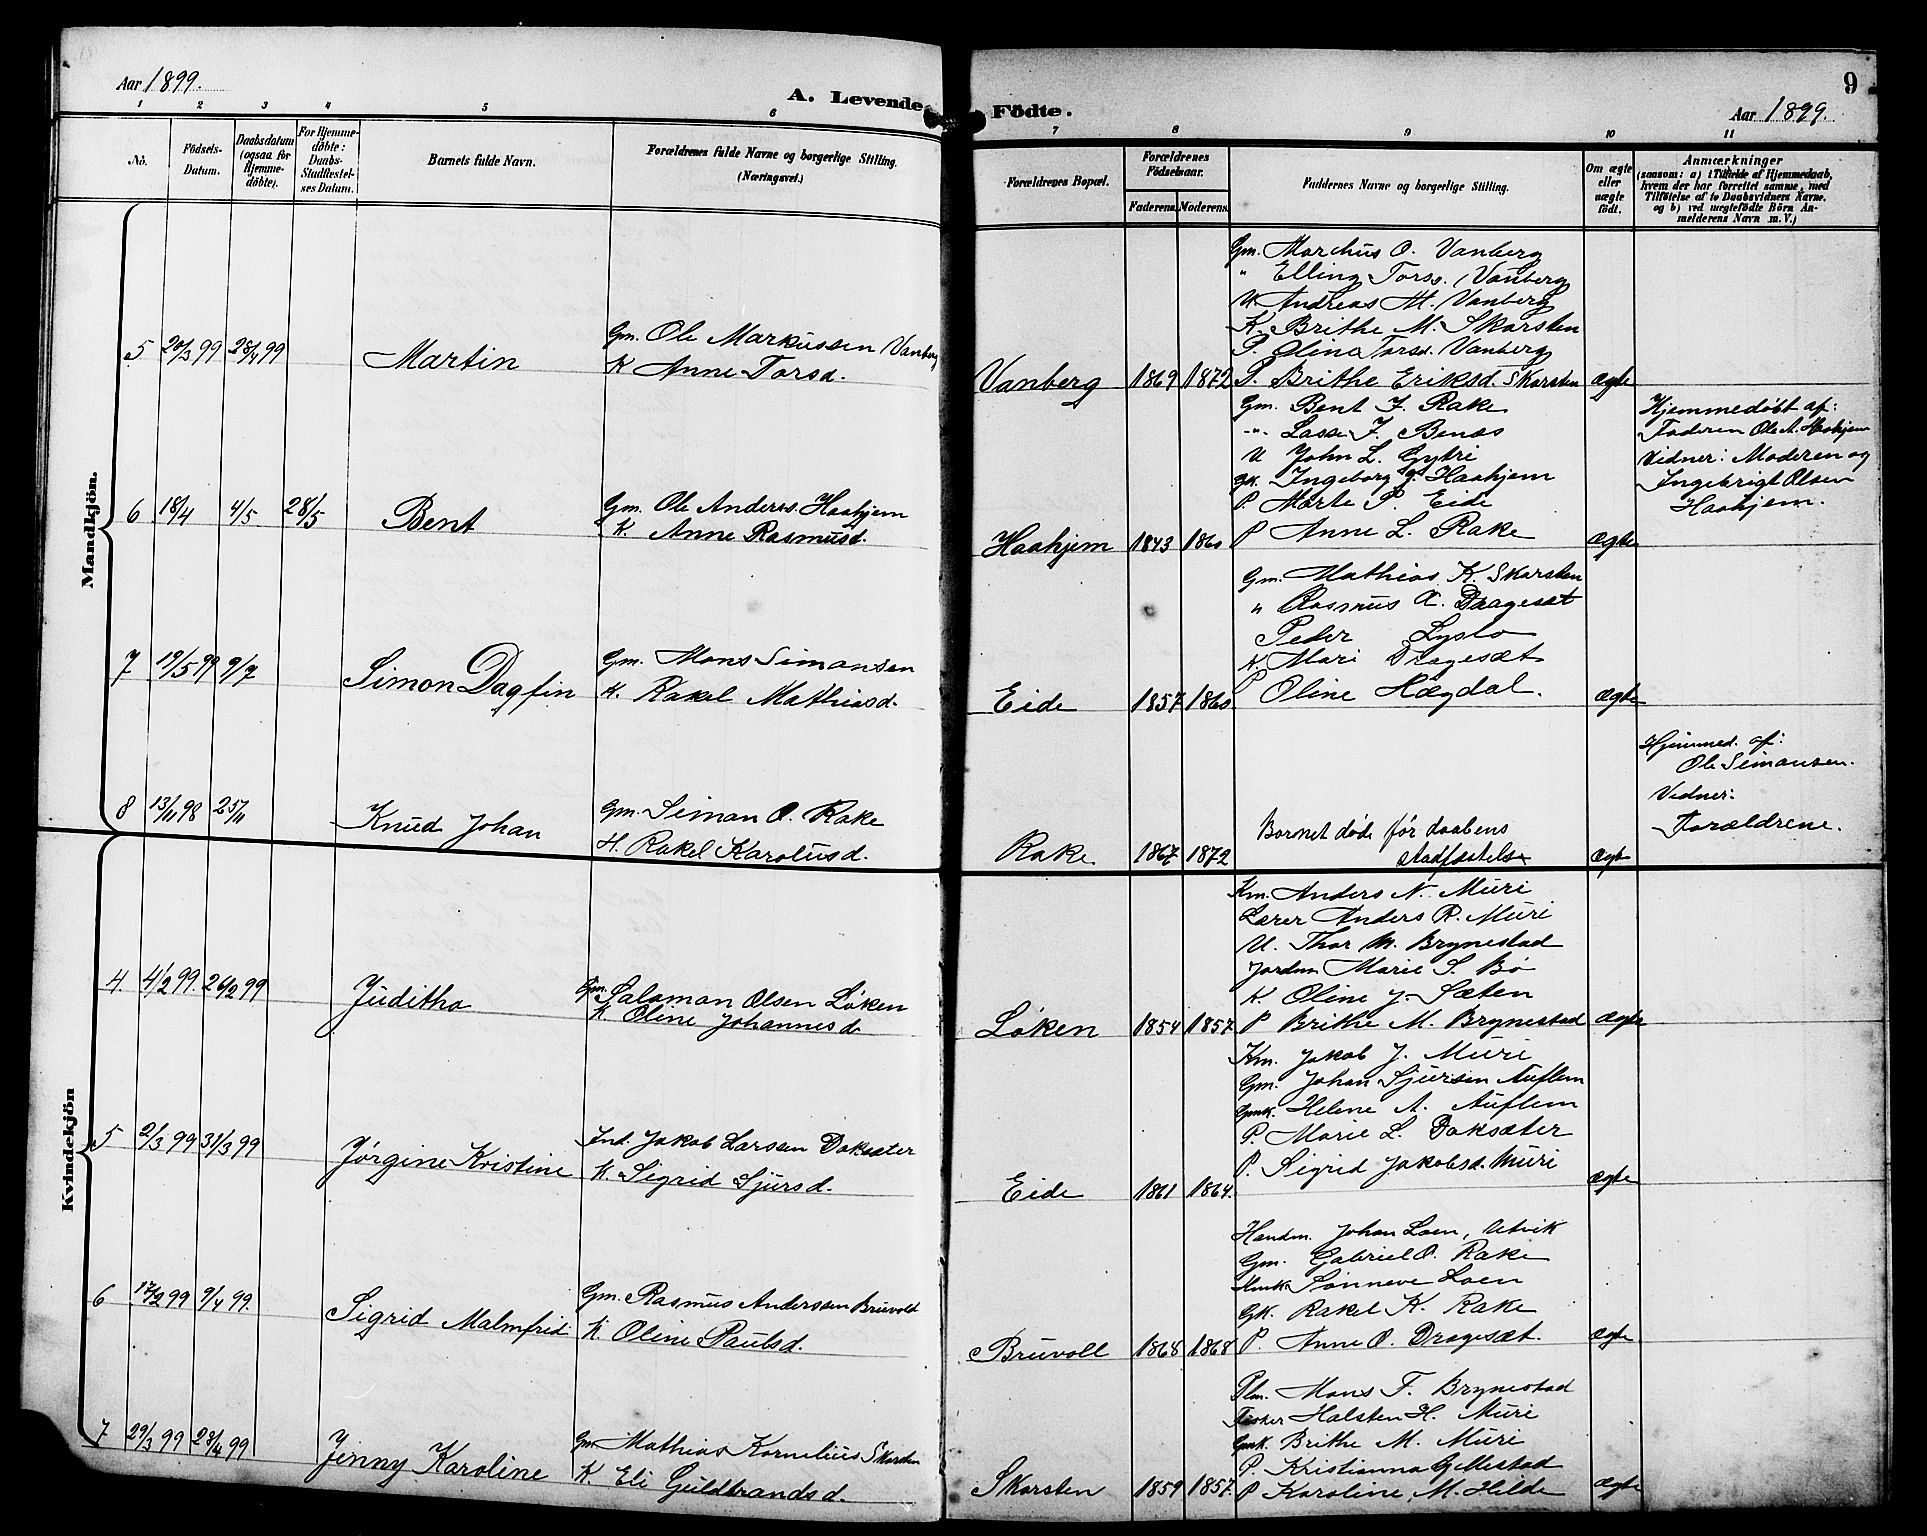 Aar 1899.
A. Levende
1 2 3 4 5 6
No.
Födsels-
Datum.
Daabsdatum
(ogsaa for
Hjemme-
döbte).
For Hjemme-
döbte:
Daabs-
Stadfæstel-
ses Datum.
Barnets fulde Navn.
Forældrenes fulde Navne og borgerlige Stilling.
(Næringsvei.)
Mandkjön.
5 29/3 99 28/4 99 Martin
Gm. Ole Markussen Vanberg
K Anne Torsd.
6 18/4 4/5 28/5 Bent
Gm. Ole Anders. Haahjem
K. Anne Rasmusd.
7 19/5 99 9/7 Simon Dagfin
Gm. Mons Simonsen
K. Rakel Mathiasd.
8 13/11 98 25/11 Knud Johan
Gm. Simon O. Rake
H. Rakel Karolusd.
Kvindekjön
4. 4/2 99. 26/2 99 Juditha
Gm. Salamon Olsen Løken
K. Oline Johannesd
5 2/3 99 31/3 99 Jørgine Kristine
Ind. Jakob Larssen Doksæter
K. Sigrid Sjursd.
6 17/2 99 9/4 99. Sigrid Malmfrid
Gm. Rasmus Anderssen Bruvold
K Oline Paulsd.
7 29/3 99 28/4 99 Jenny Karoline
Gm. Mathias Kornelius Skorsten
K. Eli Guldbrandsd.
9
Födte.
Aar 1899.
7 8 9 10 11
Forældrenes Bopæl.
Forældrenes
Födselsaar.
Faderens. Moderens.
Faddernes Navne og borgerlige Stilling.
Om ægte
eller
uægte
födt.
Anmærkninger
(saasom: a) i Tilfælde af Hjemmedaab,
hvem der har forrettet samme, med
Tilföielse af to Daabsvidners Navne,
og b) ved uægtefödte Börn An-
melderens Navn m. V.)
Gm. Marchus O. Vanberg
" Elling Torss. Vanberg
U. Andreas M. Vanberg
K. Brithe M. Skorsten
P. Olina Torsd. Vanberg
Vanberg 1869 1872 P. Brithe Eriksd. Skorsten ægte
Gm. Bent J. Rake
-"- Lasse J. Benes
U John L. Gytri
Gk. Ingeborg J. Haahjem
P. Marte P. Eide
Haahjem 1843 1860 P Anne L. Rake ægte
Hjemmedöbt af:
Faderen Ole A. Haahjem
Vidner: Moderen og
Ingebrigt Olsen
Haahjem.
Gm. Mathias K. Skorsten
" Rasmus A. Dragesæt
Peder Lyslo
K. Mari Dragesæt
Eide 1857 1860 P Oline Hægdal. ægte
Rake 1867 1872 Barnet døde før daabens
stadfæstelse ægte
Hjemmed. af:
Ole Simonsen.
Vidner:
Forældrene.
Km. Anders N. Muri
Lærer Anders R. Muri
U. Thor M. Brynestad
Jordm Marie S. Bø
K. Oline J. Sæten
Løken 1854 1857 P Brithe M. Brynestad ægte
Km. Jakob J. Muri
Gm. Johan Sjursen Auflem
Gmk. Helene A. Auflem
P. Marie L. Doksæter
P. Sigrid Jakobsd. Muri
Eide 1861 1864. ægte
Handm. Johan Loen, Utvik
Gm. Gabriel O. Rake
Hmk Sønneve Loen
Gk. Rakel K. Rake
Bruvoll 1868 1868 P. Anne O. Dragesæt. ægte
Plm. Mons F. Brynestad
Fisker Halsten H. Muri
Gmk. Brithe M. Muri
P. Kristianna Gytlestad
Skorsten 1859 1857. P Karoline M. Hilde ægte